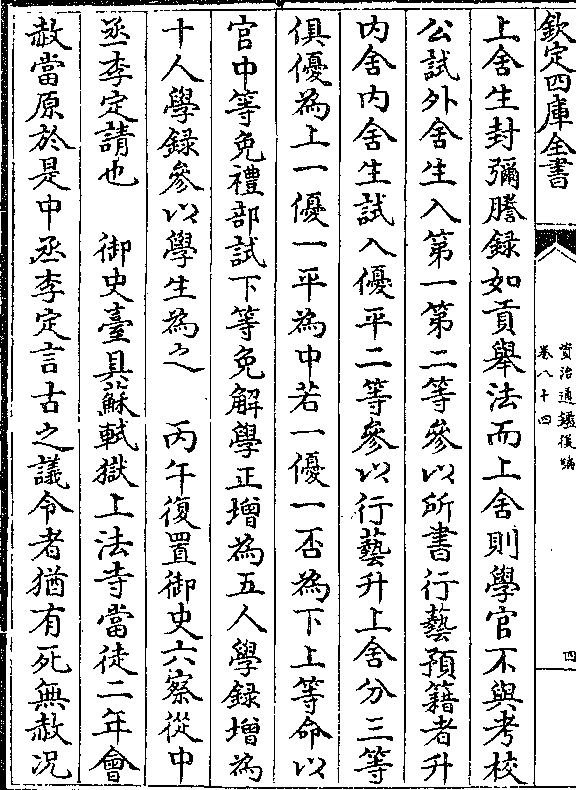 欽定四庫全書
資治通鑑後編
卷八十四
四
上舍生封彌謄録如貢舉法而上舍則學官不與考校
公試外舍生入第一第二等參以所書行藝預籍者升
内舍内舍生試入優平二等參以行藝升上舍分三等
俱優為上一優一平為中若一優一否為下上等命以
官中等免禮部試下等免解學正增為五人學録增為
十人學録參以學生為之　丙午復置御史六察從中
丞李定請也　御史臺具蘇軾獄上法寺當徒二年會
赦當原於是中丞李定言古之議令者猶有死無赦况